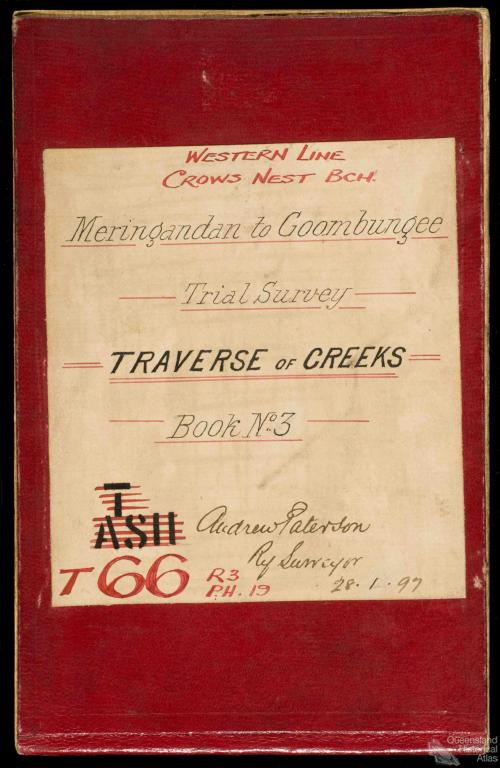 WESTERN LINE
CROWS NEST BCH.
Meringandan to Goombungee
Trial Survey
TRAVERSE OF CREEKS
Book No. 3
T
ASH
Andrew Paterson
Ry Surveyor
28.1.97
T66 R3
P.H. 19
Queensland
Historical
Atlas